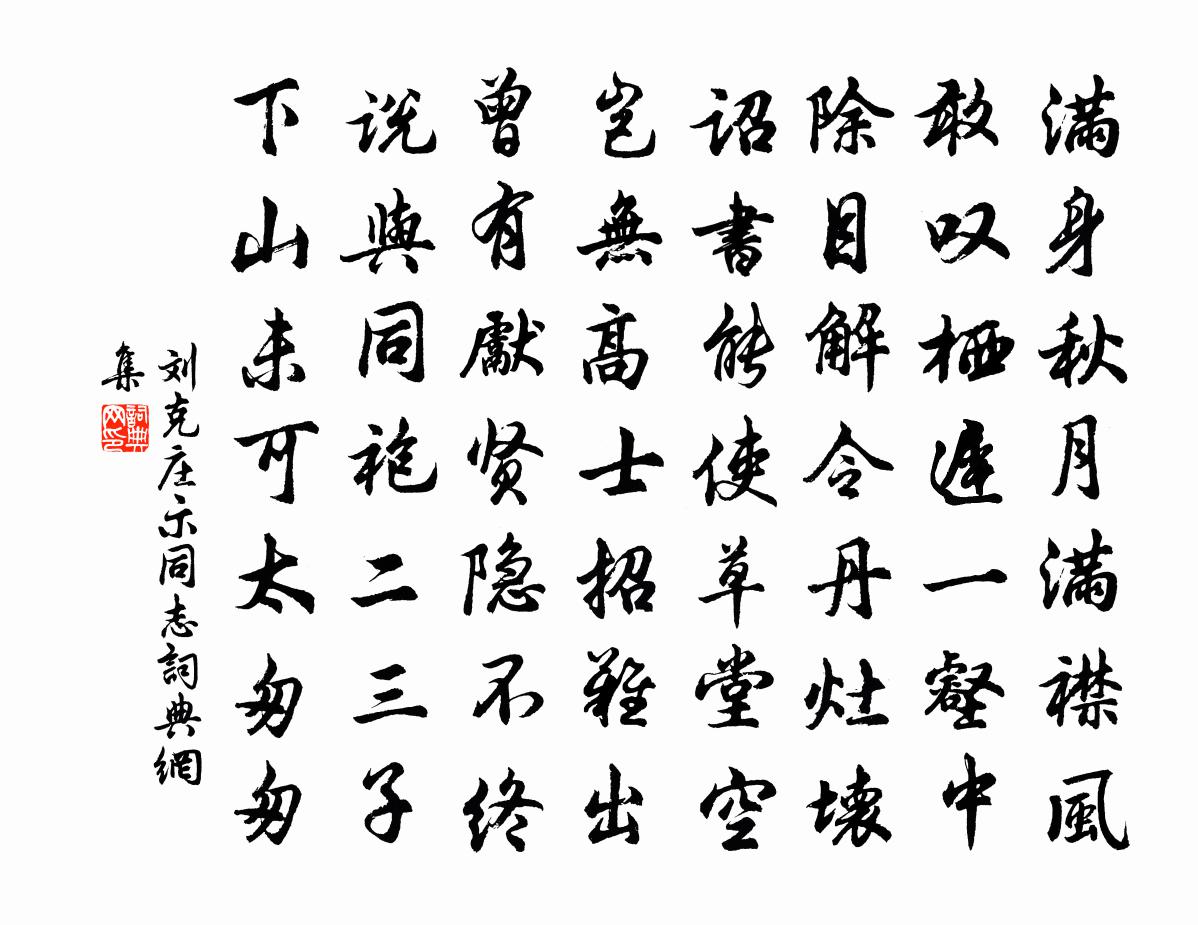 滿身秋月滿襟風
敢叹栖遲一壑中
除目解令丹灶壞
詔書能使草堂空
豈無高士招難出
曾有獻贤隐不终
说與同袍二三子
下山未可太匆匆
刘克庄示同志詞典網
集
詞典
网印